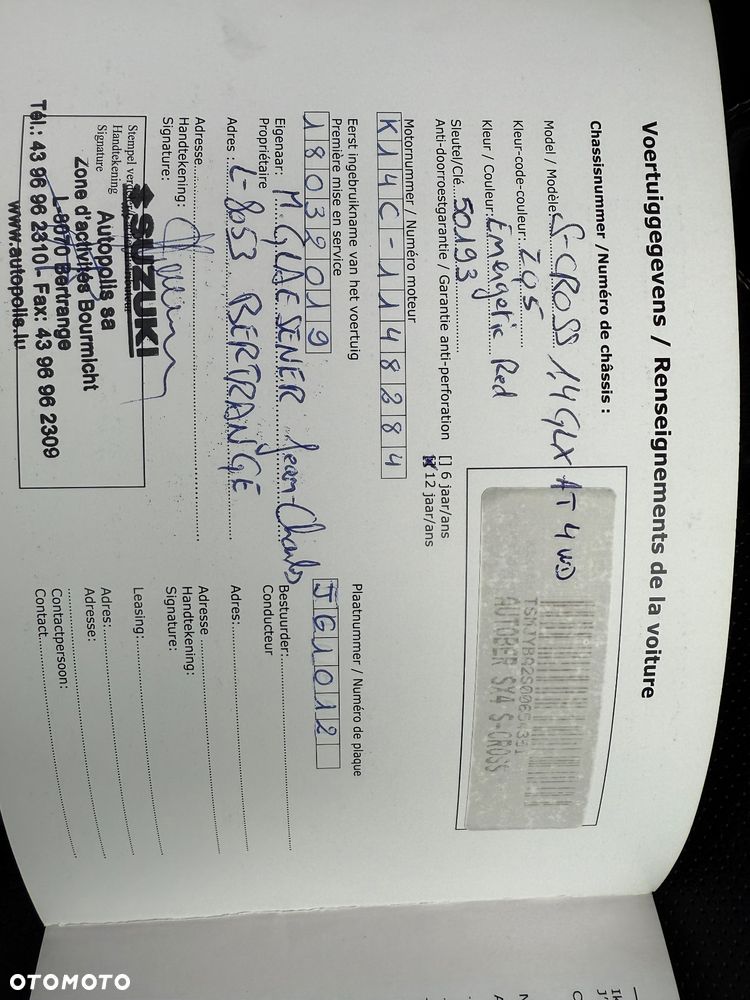 Voertuiggegevens / Renseignements de la voiture
Chassisnummer /Numéro de châssis :
AUTOBER SX4 S-CROSS
Model / Modèle: S-CROSS 1,4 GLX AT 4WD
Kleur-code-couleur: ZQ5
Kleur / Couleur: Energetic Red
Sleutel/Clé 50193
Anti-doorroestgarantie / Garantie anti-perforation [] 6 jaar/ans
[x] 12 jaar/ans
Motornummer / Numéro moteur
K14C-1148284
Plaatnummer / Numéro de plaque
JG1012
Eerst ingebruikname van het voertuig
Première mise en service
18032019
Eigenaar: M. GLAESENER Jean-Charles
Propriétaire
Adres : L-8053 BERTRANGE
Adresse
Handtekening:
Signature:
Bestuurder:
Conducteur
Adres:
Adresse
Handtekening:
Signature:
Leasing:
Adres:
Adresse:
Contactpersoon:
Contact
Stempel
Handtekening
Signature
SUZUKI
Autopolis sa
Zone d'activités Bourmicht
L-8070 Bertrange
Tél.: 43 96 96 2310 - Fax: 43 96 96 2309
www.autopolis.lu
OTOMOTO